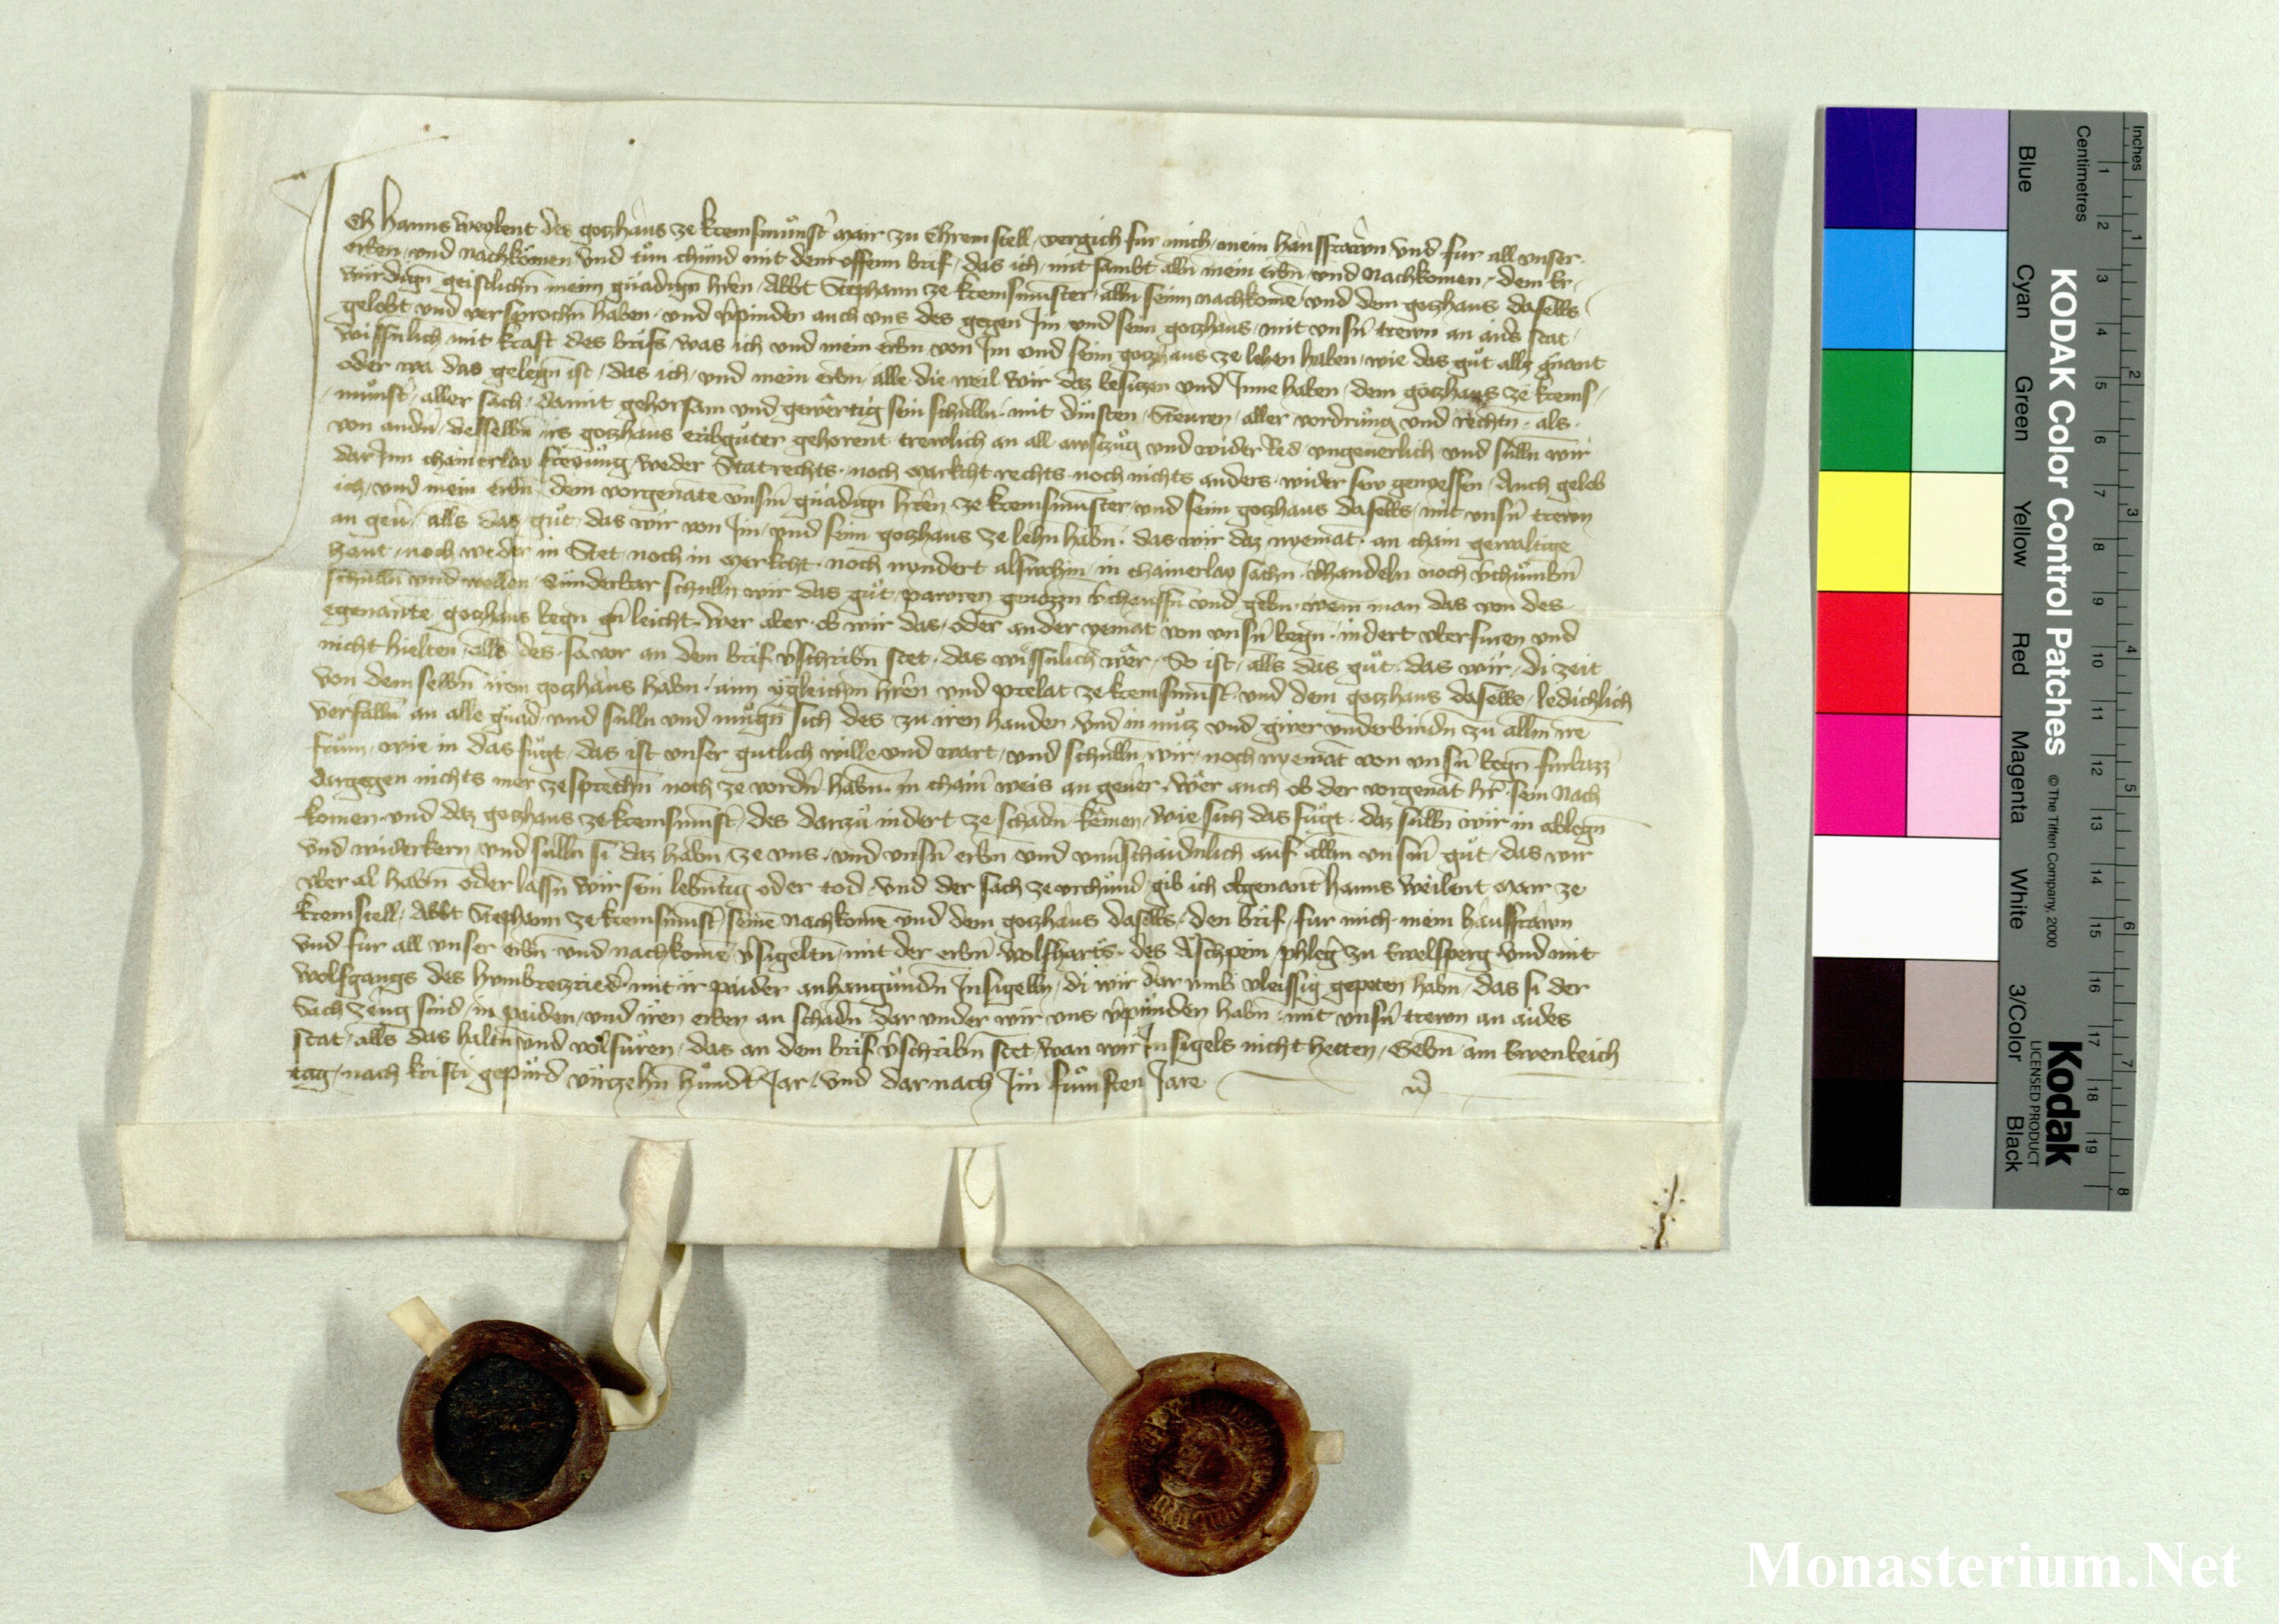 Ich Hanns Weylent des gozhaus ze Kremsmunst(er) mair zu Chremstell, vergich fur mich, mein hausfrawn vnd fur all vnser
erben, vnd nachkomen vnd tun chund mit dem offenn brif, das ich, mit sambt alln mein erbn, vnd nachkomen, dem Er
wirdign geistlichn meim gnadign hren, Abbt Stephann ze Kremsmunster, alln seinn nachkome, vnd dem gozhaus daselbs
gelobt vnd versprochn haben, vnd v(er)pinden auch vns des gegen Im vnd seim gozhaus, mit vnsn trewn an aids stat,
wissnlich mit kraft des brifs, was ich vnd mein erbn von Im vnd seim gozhaus ze lehen haben, wie das gut alls gnant
oder wa das gelegn ist, das ich, vnd mein erbn, alle die weil wir daz besizen vnd Inne haben, dem gozhaus ze Krems
munst(er), aller sach, damit gehorsam vnd gewertig sein schulln, mit dinsten, Steuren, aller vordrung vnd rechtn, als
von andn, desselbn irs gozhaus eribguter gehorent trewlich an all awszug vnd widerRed, vngeuerlich vnd sulln wir
darInn chainerlay freyung, weder Statrechts, noch markchtrechts noch nichts anders, wider sew genyessen, Auch gelob
ich, vnd mein erbn, dem vorgenate vnsm gnadign hren ze Kremsmunster, vnd seim gozhaus daselbs, mit vnsn trewn
an geu(er), alls das gut, das wir von Im, vnd seim gozhaus ze lehn habn, das wir daz nyemat, an chain gewaltige
hant, noch weder in Stet noch in merkcht, noch nyndert alswohin, in chainerlay sachn, Wandeln noch v(er)chumbn
schulln vnd wellen, Sunderbar schulln wir das gut, pawren gnozzn v(er)chauffn vnd gebn, wem man das von des
egenante gozhaus wegn gn leicht, Wer aber ob wir das, oder ander yemat von vnsn wegn, indert vberfuren vnd
nicht hielten, alls des, so vor an dem brif v(er)schribn stet, das wissnlich wer, So ist, alls das gut, das wir, di zeit
von demselbn irem gozhaus habn, aim ygleichm hren vnd prelat ze Kremsmunst(er), vnd dem gozhaus daselbs, ledichlich
verfalln an alle gnad, vnd sulln vnd mugn sich des zu iren handen, vnd in nuz vnd gwer vnderbindn zu allm ire
frum, wie in das fugt, das ist vnser gutlich wille vnd wart, vnd schulln, wir, noch nyemat von vnsn wegn furbazz
dargegen nichts mer ze sprechn noch ze vordn habn, in chain weis an geuer, Wer auch ob der vorgenat hr, sein Nach
komen vnd daz gozhaus ze Kremsmunst(er), des darzu indert ze schadn kemen, wie sich das fugt, daz sulln wir in ablegn
vnd widerkern, vnd sulln si daz habn, ze vns, vnd vnsn erbn vnd vnu(er)schaidnlich auf allm vnsm gut, das wir
vberal habn oder lassn wir sein lebntig oder tod, vnd der sach ze vrchund, gib ich obgenant Hanns Weilent mair ze
Kremstell, Abbt Stephann ze Kremsmunst(er), seine nachkome vnd dem gozhaus daselbs, den brif, fur mich, mein hausfrawn
vnd fur all vnser erbn vnd nachkome, v(er)sigeltn, mit der erbn Wolfharts, des Aschpein, phleg(er) zu Ewelsperg vnd mit
Wolfgangs des hymbrezried(er), mit ir paider anhangundn Insigelln, di wir dar vmb vleissig gepeten habn, das si der
Sach zeug sind, in paiden, vnd iren erben an schadn dar vnder wir vns v(er)pinden habn, mit vnsn trewn an aides
stat, alls das haltn vnd volfuren, das an dem brif v(er)schribn stet, wan wir Insigels nicht hetten, Gebn am Ewenbeich
tag, nach kristi gepurd virzehn hundt Jar, vnd dar nach Im fumften Jare
Inches
Centimetres
1 2 3 4 5 6 7 8 9 10 11 12 13 14 15 16 17 18 19
1 2 3 4 5 6 7 8
Blue Cyan Green Yellow Red Magenta White 3/Color Black
KODAK Color Control Patches
© The Tiffen Company, 2000
Kodak
LICENSED PRODUCT
Monasterium.Net